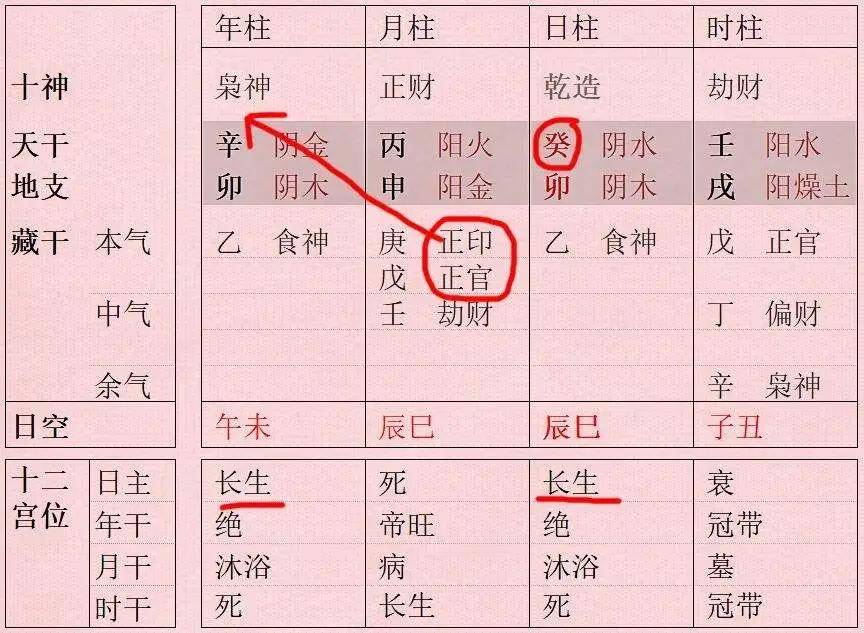 年柱 月柱 日柱 时柱
十神 枭神 正财 乾造 劫财
天干 辛 阴金 丙 阳火 癸 阴水 壬 阳水
地支 卯 阴木 申 阳金 卯 阴木 戌 阳燥土
藏干 本气 乙 食神 庚 正印 乙 食神 戊 正官
戊 正官
中气 壬 劫财 丁 偏财
余气 辛 枭神
日空 午未 辰巳 辰巳 子丑
十二宫位 日主 长生 死 长生 衰
年干 绝 帝旺 绝 冠带
月干 沐浴 病 沐浴 墓
时干 死 长生 死 冠带